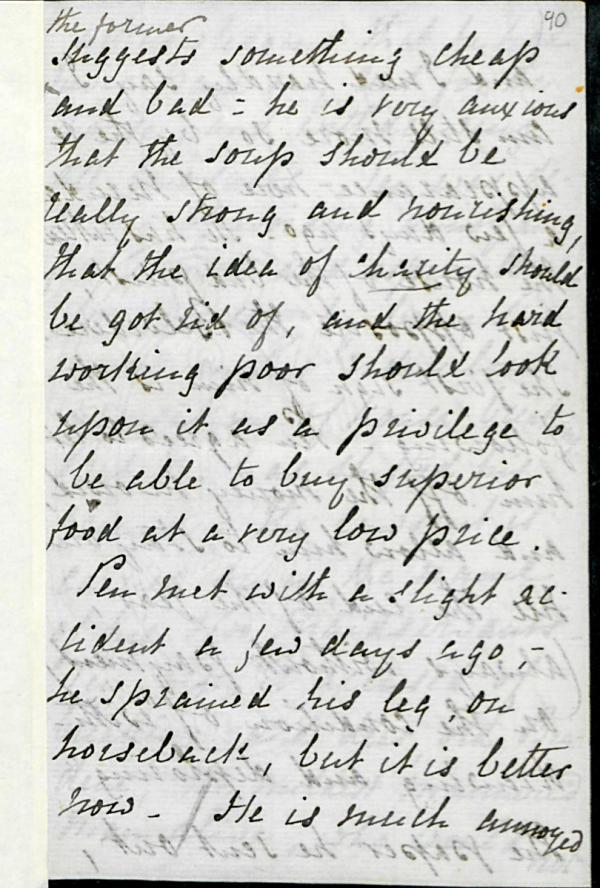 90
the former
suggests something cheap
and bad - he is very anxious
that the soup should be
really strong and nourishing,
that the idea of charity should
be got rid of, and the hard
working poor should look
upon it as a privilege to
be able to buy superior
food at a very low price.
Pen met with a slight ac-
cident a few days ago, -
he sprained his leg, on
horseback, but it is better
now - He is much annoyed